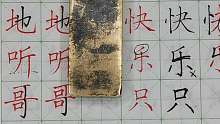 地 地 快 快
听 听 乐 乐
哥 哥 只 只